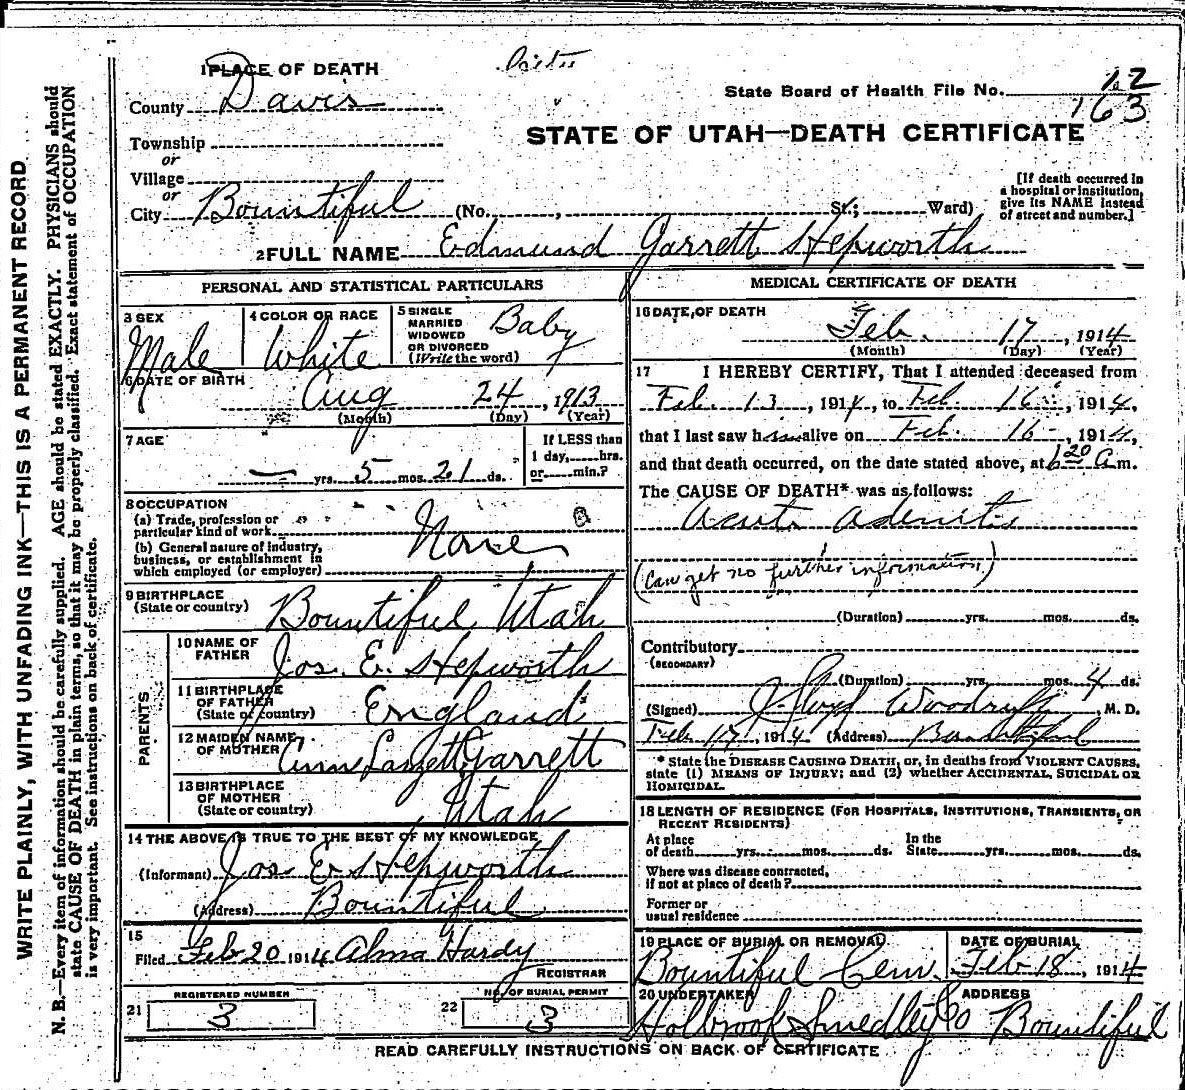 1 PLACE OF DEATH
County Davis
Township
or
Village
or
City Bountiful (No. , St.; Ward)
State Board of Health File No. 12
163
STATE OF UTAH—DEATH CERTIFICATE
[If death occurred in
a hospital or institution,
give its NAME instead
of street and number.]
2 FULL NAME Edmund Garrett Hepworth
PERSONAL AND STATISTICAL PARTICULARS
3 SEX
Male
4 COLOR OR RACE
White
5 SINGLE
MARRIED
WIDOWED
OR DIVORCED
(Write the word)
Baby
6 DATE OF BIRTH
Aug 24, 1913
(Month) (Day) (Year)
7 AGE
— yrs. 5 mos. 21 ds.
If LESS than
1 day, hrs.
or min.?
8 OCCUPATION
(a) Trade, profession or
particular kind of work
(b) General nature of industry,
business, or establishment in
which employed (or employer)
None
9 BIRTHPLACE
(State or country)
Bountiful Utah
PARENTS
10 NAME OF
FATHER
Jos. E. Hepworth
11 BIRTHPLACE
OF FATHER
(State or country)
England
12 MAIDEN NAME
OF MOTHER
Garrett
13 BIRTHPLACE
OF MOTHER
(State or country)
Utah
14 THE ABOVE IS TRUE TO THE BEST OF MY KNOWLEDGE
(Informant) Jos E Hepworth
(Address) Bountiful
15
Filed Feb 20 1914 Alma Hardy
REGISTRAR
REGISTERED NUMBER
21 3
NO. OF BURIAL PERMIT
22 3
MEDICAL CERTIFICATE OF DEATH
16 DATE OF DEATH
Feb. 17, 1914
(Month) (Day) (Year)
17 I HEREBY CERTIFY, That I attended deceased from
Feb. 13, 1914, to Feb. 16, 1914,
that I last saw h alive on Feb. 16, 1914,
and that death occurred, on the date stated above, at 6 20 a.m.
The CAUSE OF DEATH* was as follows:
Acute adenitis
(Can get no further information)
(Duration) yrs. mos. ds.
Contributory
(SECONDARY)
(Duration) yrs. mos. 4 ds.
(Signed) Woodruff, M. D.
Feb 17, 1914 (Address) Bountiful
* State the DISEASE CAUSING DEATH, or, in deaths from VIOLENT CAUSES,
state (1) MEANS OF INJURY; and (2) whether ACCIDENTAL, SUICIDAL OR
HOMICIDAL.
18 LENGTH OF RESIDENCE (FOR HOSPITALS, INSTITUTIONS, TRANSIENTS, OR
RECENT RESIDENTS)
At place
of death yrs. mos. ds.
In the
State yrs. mos. ds.
Where was disease contracted,
if not at place of death?
Former or
usual residence
19 PLACE OF BURIAL OR REMOVAL
Bountiful Cem.
DATE OF BURIAL
Feb 18, 1914
20 UNDERTAKER
Holbrook Smedley Co
ADDRESS
Bountiful
READ CAREFULLY INSTRUCTIONS ON BACK OF CERTIFICATE
WRITE PLAINLY, WITH UNFADING INK—THIS IS A PERMANENT RECORD
N. B.—Every item of information should be carefully supplied. AGE should be stated EXACTLY. PHYSICIANS should
state CAUSE OF DEATH in plain terms, so that it may be properly classified. Exact statement of OCCUPATION
is very important. See instructions on back of certificate.